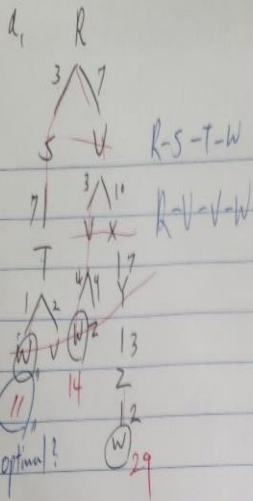 a,
R
3 7
S V R-S-T-W
7 3 10
V X R-V-V-W
T 4 4 17
1 2 Y
W V W 2 13
11 14 Z
12
optimal? W 29